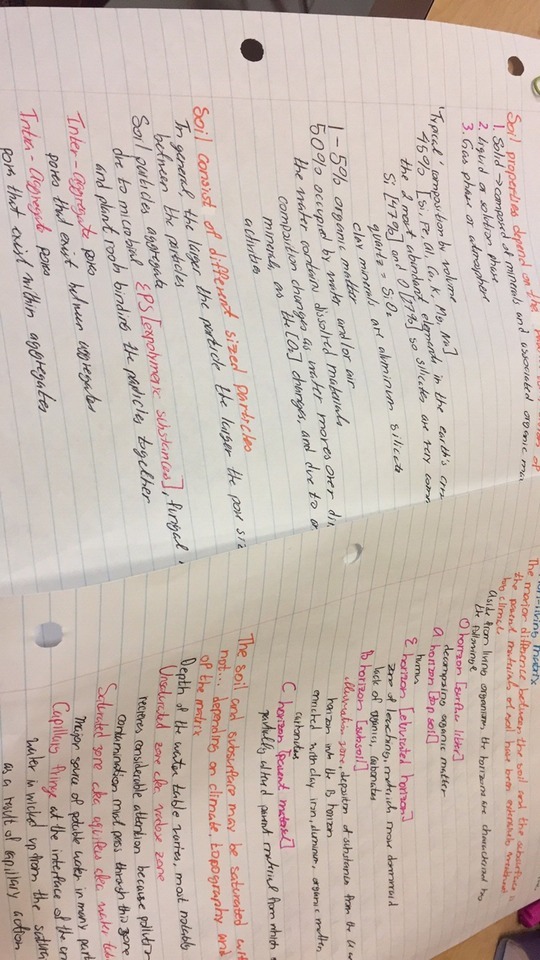 Soil properties depend on the
1. Solid → composed of minerals and associated organic
2. Liquid or solution phase
3. Gas phase or atmosphere
'Typical' composition by volume
45% [Si, Fe, Al, Ca, K, Mg, Na]
the 2 most abundant elements in the earth's
Si [47%] and O [27%] so silicates are very
quartz = SiO2
clay minerals are aluminum silicate
1-5% organic matter
50% occupied by water and/or air
the water contains dissolved materials
composition changes as water moves over
minerals, as the [O2] changes, and due to
activities
Soil consist of different sized particles
In general the larger the particle the larger the pore
between the particles
Soil particles aggregate
due to microbial EPS [expolymeric substances], fungal
and plant roots binding the particles together
Inter-aggregate pores
pores that exist between aggregates
Intra-Aggregate pores
pores that exist within aggregates
non-living matrix
The major difference between the soil and the subsurface is
the parent materials of soil have been extensively weathered
by climate
aside from living organisms, the horizons are characterized by
the following
O horizon [surface litter]
decomposing organic matter
A horizon [top soil]
humus
E horizon [eluviated horizon]
zone of leaching, materials move downward
lack of organics, carbonates
B horizon [subsoil]
illuviation zone, deposition of substances from the
horizon into the B horizon
enriched with clay, iron, aluminum, organic matter,
carbonates
C horizon [parent material]
partially altered parent material from which
The soil and subsurface may be saturated
not... depending on climate topography and
of the matrix
Depth of the water table varies, most notably
Unsaturated zone aka vadose zone
receives considerable attention because
contamination must pass through this zone
Saturated zone aka aquifers aka water
major source of potable water in many
Capillary fringe at the interface of the
water is wicked up from the
as a result of capillary action